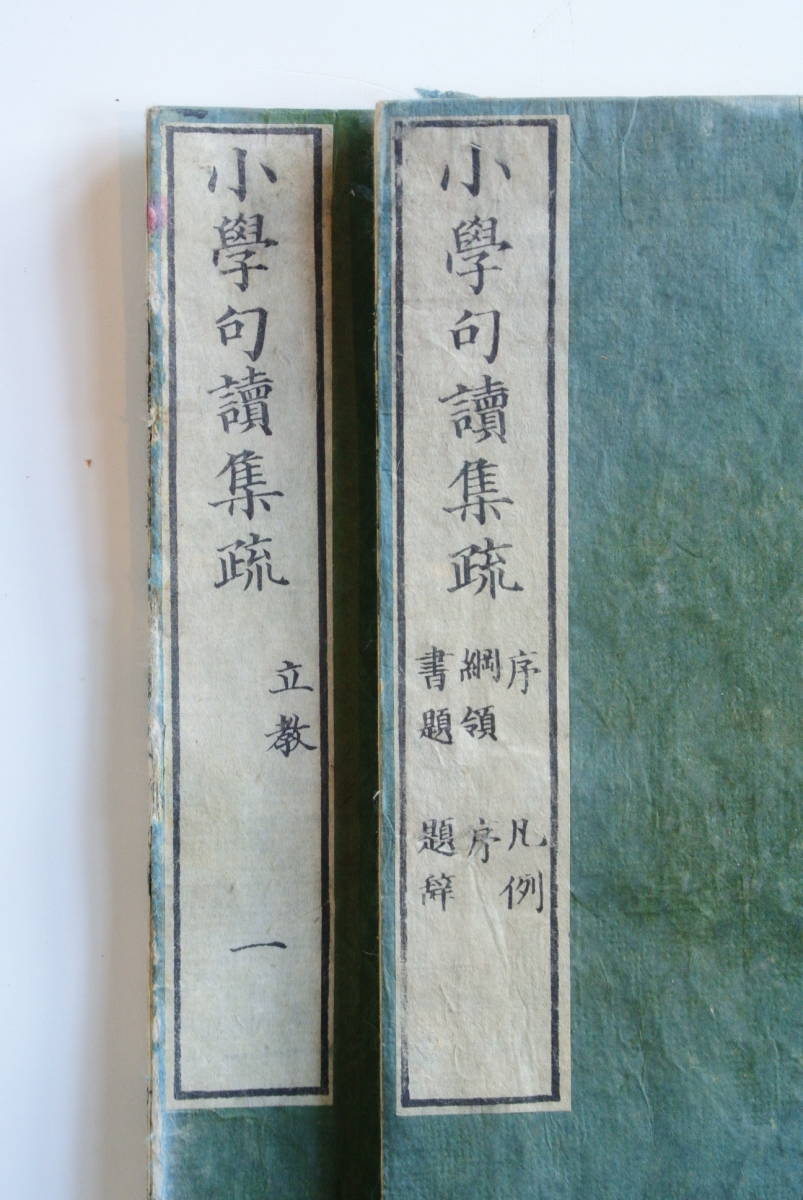 小學句讀集疏
序 凡例
綱領 序
書題 題辞
小學句讀集疏
立教
一